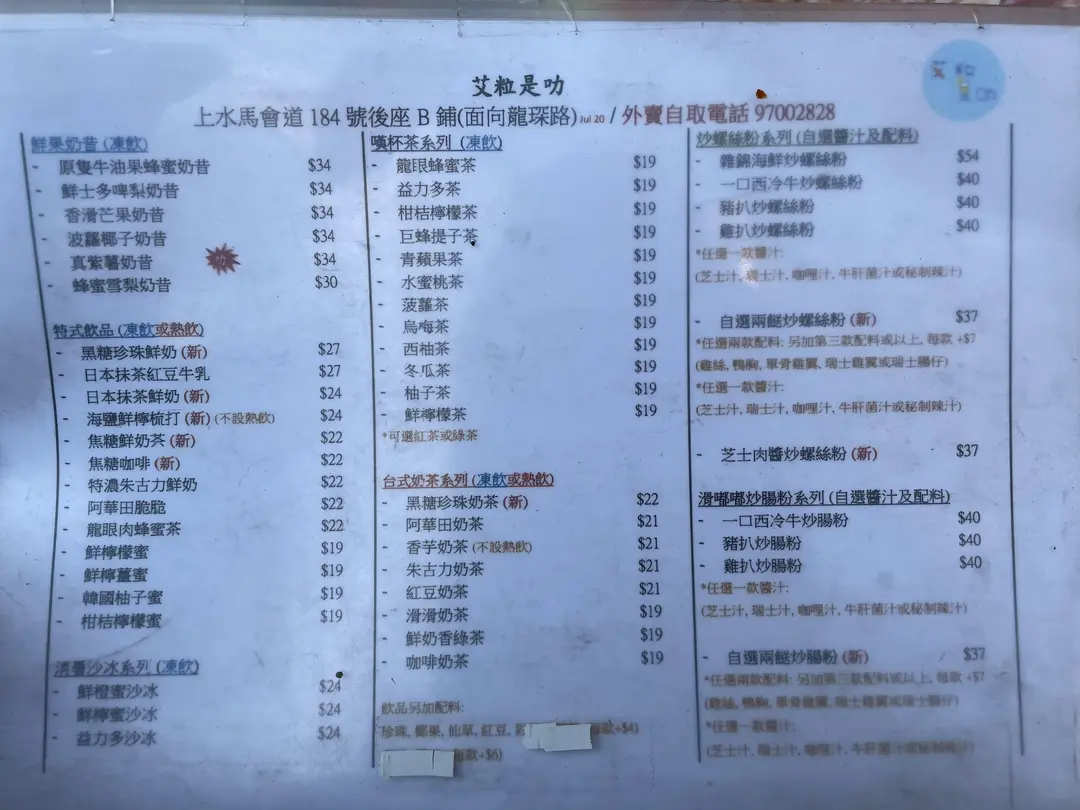 艾粒是叻
上水馬會道 184 號後座 B 鋪(面向龍琛路) Jul 20 / 外賣自取電話 97002828
鮮果奶昔 (凍飲)
- 原隻牛油果蜂蜜奶昔 $34
- 鮮士多啤梨奶昔 $34
- 香滑芒果奶昔 $34
- 波蘿椰子奶昔 $34
- 真紫薯奶昔 $34
- 蜂蜜雪梨奶昔 $30
特式飲品 (凍飲或熱飲)
- 黑糖珍珠鮮奶 (新) $27
- 日本抹茶紅豆牛乳 $27
- 日本抹茶鮮奶 (新) $24
- 海鹽鮮檸梳打 (新) (不設熱飲) $24
- 焦糖鮮奶茶 (新) $22
- 焦糖咖啡 (新) $22
- 特濃朱古力鮮奶 $22
- 阿華田脆脆 $22
- 龍眼肉蜂蜜茶 $22
- 鮮檸檬蜜 $19
- 鮮檸薑蜜 $19
- 韓國柚子蜜 $19
- 柑桔檸檬蜜 $19
消暑沙冰系列 (凍飲)
- 鮮橙蜜沙冰 $24
- 鮮檸蜜沙冰 $24
- 益力多沙冰 $24
嘆杯茶系列 (凍飲)
- 龍眼蜂蜜茶 $19
- 益力多茶 $19
- 柑桔檸檬茶 $19
- 巨蜂提子茶 $19
- 青蘋果茶 $19
- 水蜜桃茶 $19
- 菠蘿茶 $19
- 烏梅茶 $19
- 西柚茶 $19
- 冬瓜茶 $19
- 柚子茶 $19
- 鮮檸檬茶 $19
*可選紅茶或綠茶
台式奶茶系列 (凍飲或熱飲)
- 黑糖珍珠奶茶 (新) $22
- 阿華田奶茶 $21
- 香芋奶茶 (不設熱飲) $21
- 朱古力奶茶 $21
- 紅豆奶茶 $21
- 滑滑奶茶 $19
- 鮮奶香綠茶 $19
- 咖啡奶茶 $19
飲品另加配料:
珍珠, 椰果, 仙草, 紅豆, 每款+$4)
每款+$6)
炒螺絲粉系列 (自選醬汁及配料)
- 雜錦海鮮炒螺絲粉 $54
- 一口西冷牛炒螺絲粉 $40
- 豬扒炒螺絲粉 $40
- 雞扒炒螺絲粉 $40
*任選一款醬汁:
(芝士汁, 瑞士汁, 咖哩汁, 牛肝菌汁或秘制辣汁)
- 自選兩餸炒螺絲粉 (新) $37
*任選兩款配料: 另加第三款配料或以上, 每款 +$7
(雞絲, 鴨胸, 單骨雞翼, 瑞士雞翼或瑞士腸仔)
*任選一款醬汁:
(芝士汁, 瑞士汁, 咖哩汁, 牛肝菌汁或秘制辣汁)
- 芝士肉醬炒螺絲粉 (新) $37
滑嘟嘟炒腸粉系列 (自選醬汁及配料)
- 一口西冷牛炒腸粉 $40
- 豬扒炒腸粉 $40
- 雞扒炒腸粉 $40
*任選一款醬汁:
(芝士汁, 瑞士汁, 咖哩汁, 牛肝菌汁或秘制辣汁)
- 自選兩餸炒腸粉 (新) $37
*任選兩款配料: 另加第三款配料或以上, 每款 +$7
(雞絲, 鴨胸, 單骨雞翼, 瑞士雞翼或瑞士腸仔)
*任選一款醬汁:
(芝士汁, 瑞士汁, 咖哩汁, 牛肝菌汁或秘制辣汁)